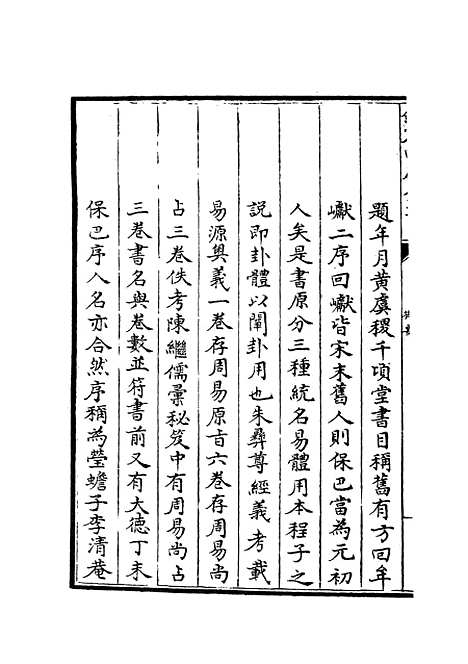 題年月黄虞稷千頃堂書目稱舊有方回牟
巘二序回巘皆宋末舊人則保巴當為元初
人矣是書原分三種統名易體用本程子之
說即卦體以闡卦用也朱彝尊經義考載
易源奥義一卷存周易原㫖六卷存周易尚
占三卷佚考陳繼儒彙秘笈中有周易尚占
三卷書名與卷數並符書前又有大德丁未
保巴序人名亦合然序稱為瑩蟾子李清菴